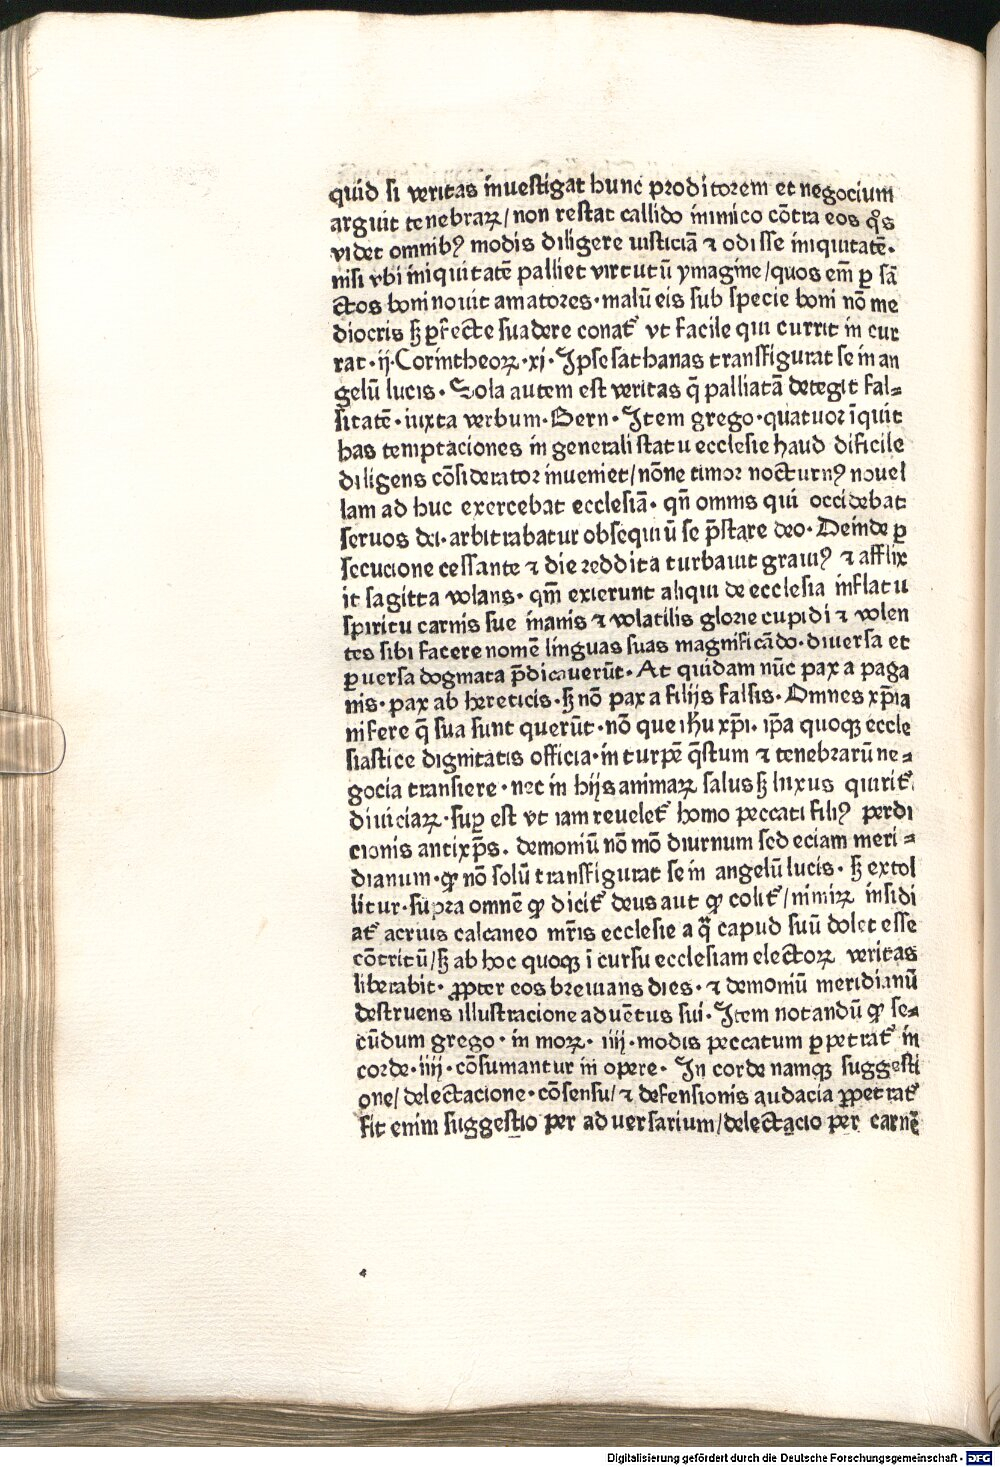 quid si veritas inuestigat hunc proditorem et negocium
arguit tenebraꝝ/non restat callido inimico cōtra eos q̊s
videt omnibꝰ modis diligere iusticiā ⁊ odisse iniquitatē·
nisi vbi iniquitatē palliet virtutū ymagine/quos em̄ ꝑ sā
ctos boni nouit amatores·malū eis sub specie boni nō me
diocris sꝫ ꝑfecte suadere conat᷑ vt facile qui currit in cur
rat·ij·Corintheoꝝ·xj·Ipse sathanas transfigurat se in an
gelū lucis·Sola autem est veritas q̄ palliatā detegit fal⸗
sitatē·iuxta verbum·Bern·Item grego·quatuor īquit
has temptaciones in generali statu ecclesie haud dificile
diligens cōsiderator inueniet/nōne timor nocturnꝰ nouel
lam ad huc exercebat ecclesiā·qn̄ omnis qui occidebat
seruos dei·arbitrabatur obsequiū se p̄stare deo·Deinde ꝑ
secucione cessante ⁊ die reddita turbauit grauiꝰ ⁊ afflix
it sagitta volans·qm̄ exierunt aliqui de ecclesia inflatu
spiritu carnis sue inanis ⁊ volatilis glorie cupidi ⁊ volen
tes sibi facere nomē linguas suas magnificādo·diuersa et
ꝑuersa dogmata p̄dicauerūt·At quidam nūc pax a paga
nis·pax ab hereticis·sꝫ nō pax a filijs falsis·Omnes xp̄ia
ni fere q̄ sua sunt querūt·nō que ihū xp̄i·ip̄a quoqꝫ eccle
siastice dignitatis officia·in turpē q̄stum ⁊ tenebrarū ne⸗
gocia transiere·nec in hijs animaꝝ salus sꝫ luxus quirit᷑
diuiciaꝝ·suꝑ est vt iam reuelet᷑ homo peccati filiꝰ perdi
cionis antixp̄s·demoniū nō mō diurnum sed eciam meri⸗
dianum·ꝙ nō solū transfigurat se in angelū lucis·sꝫ extol
litur·supra omnē ꝙ dicit᷑ deus aut ꝙ colit᷑/nimiꝝ insidi
at᷑ acrius calcaneo mr̄is ecclesie a q̄ capud suū dolet esse
cōtritū/sꝫ ab hoc quoqꝫ ī cursu ecclesiam electoꝝ veritas
liberabit·ꝓpter eos breuians dies·⁊ demoniū meridianū
destruens illustracione aduētus sui·Item notandū ꝙ se⸗
cūdum grego·in moꝝ·iiij·modis peccatum ꝑpetrat᷑ in
corde·iiij·cōsumantur in opere·In corde namqꝫ suggesti
one/delectacione·cōsensu/⁊ defensionis audacia ꝓpetrat᷑
Fit enim suggestio per aduersarium/delectacio per carnē
Digitalisierung gefördert durch die Deutsche Forschungsgemeinschaft - DFG